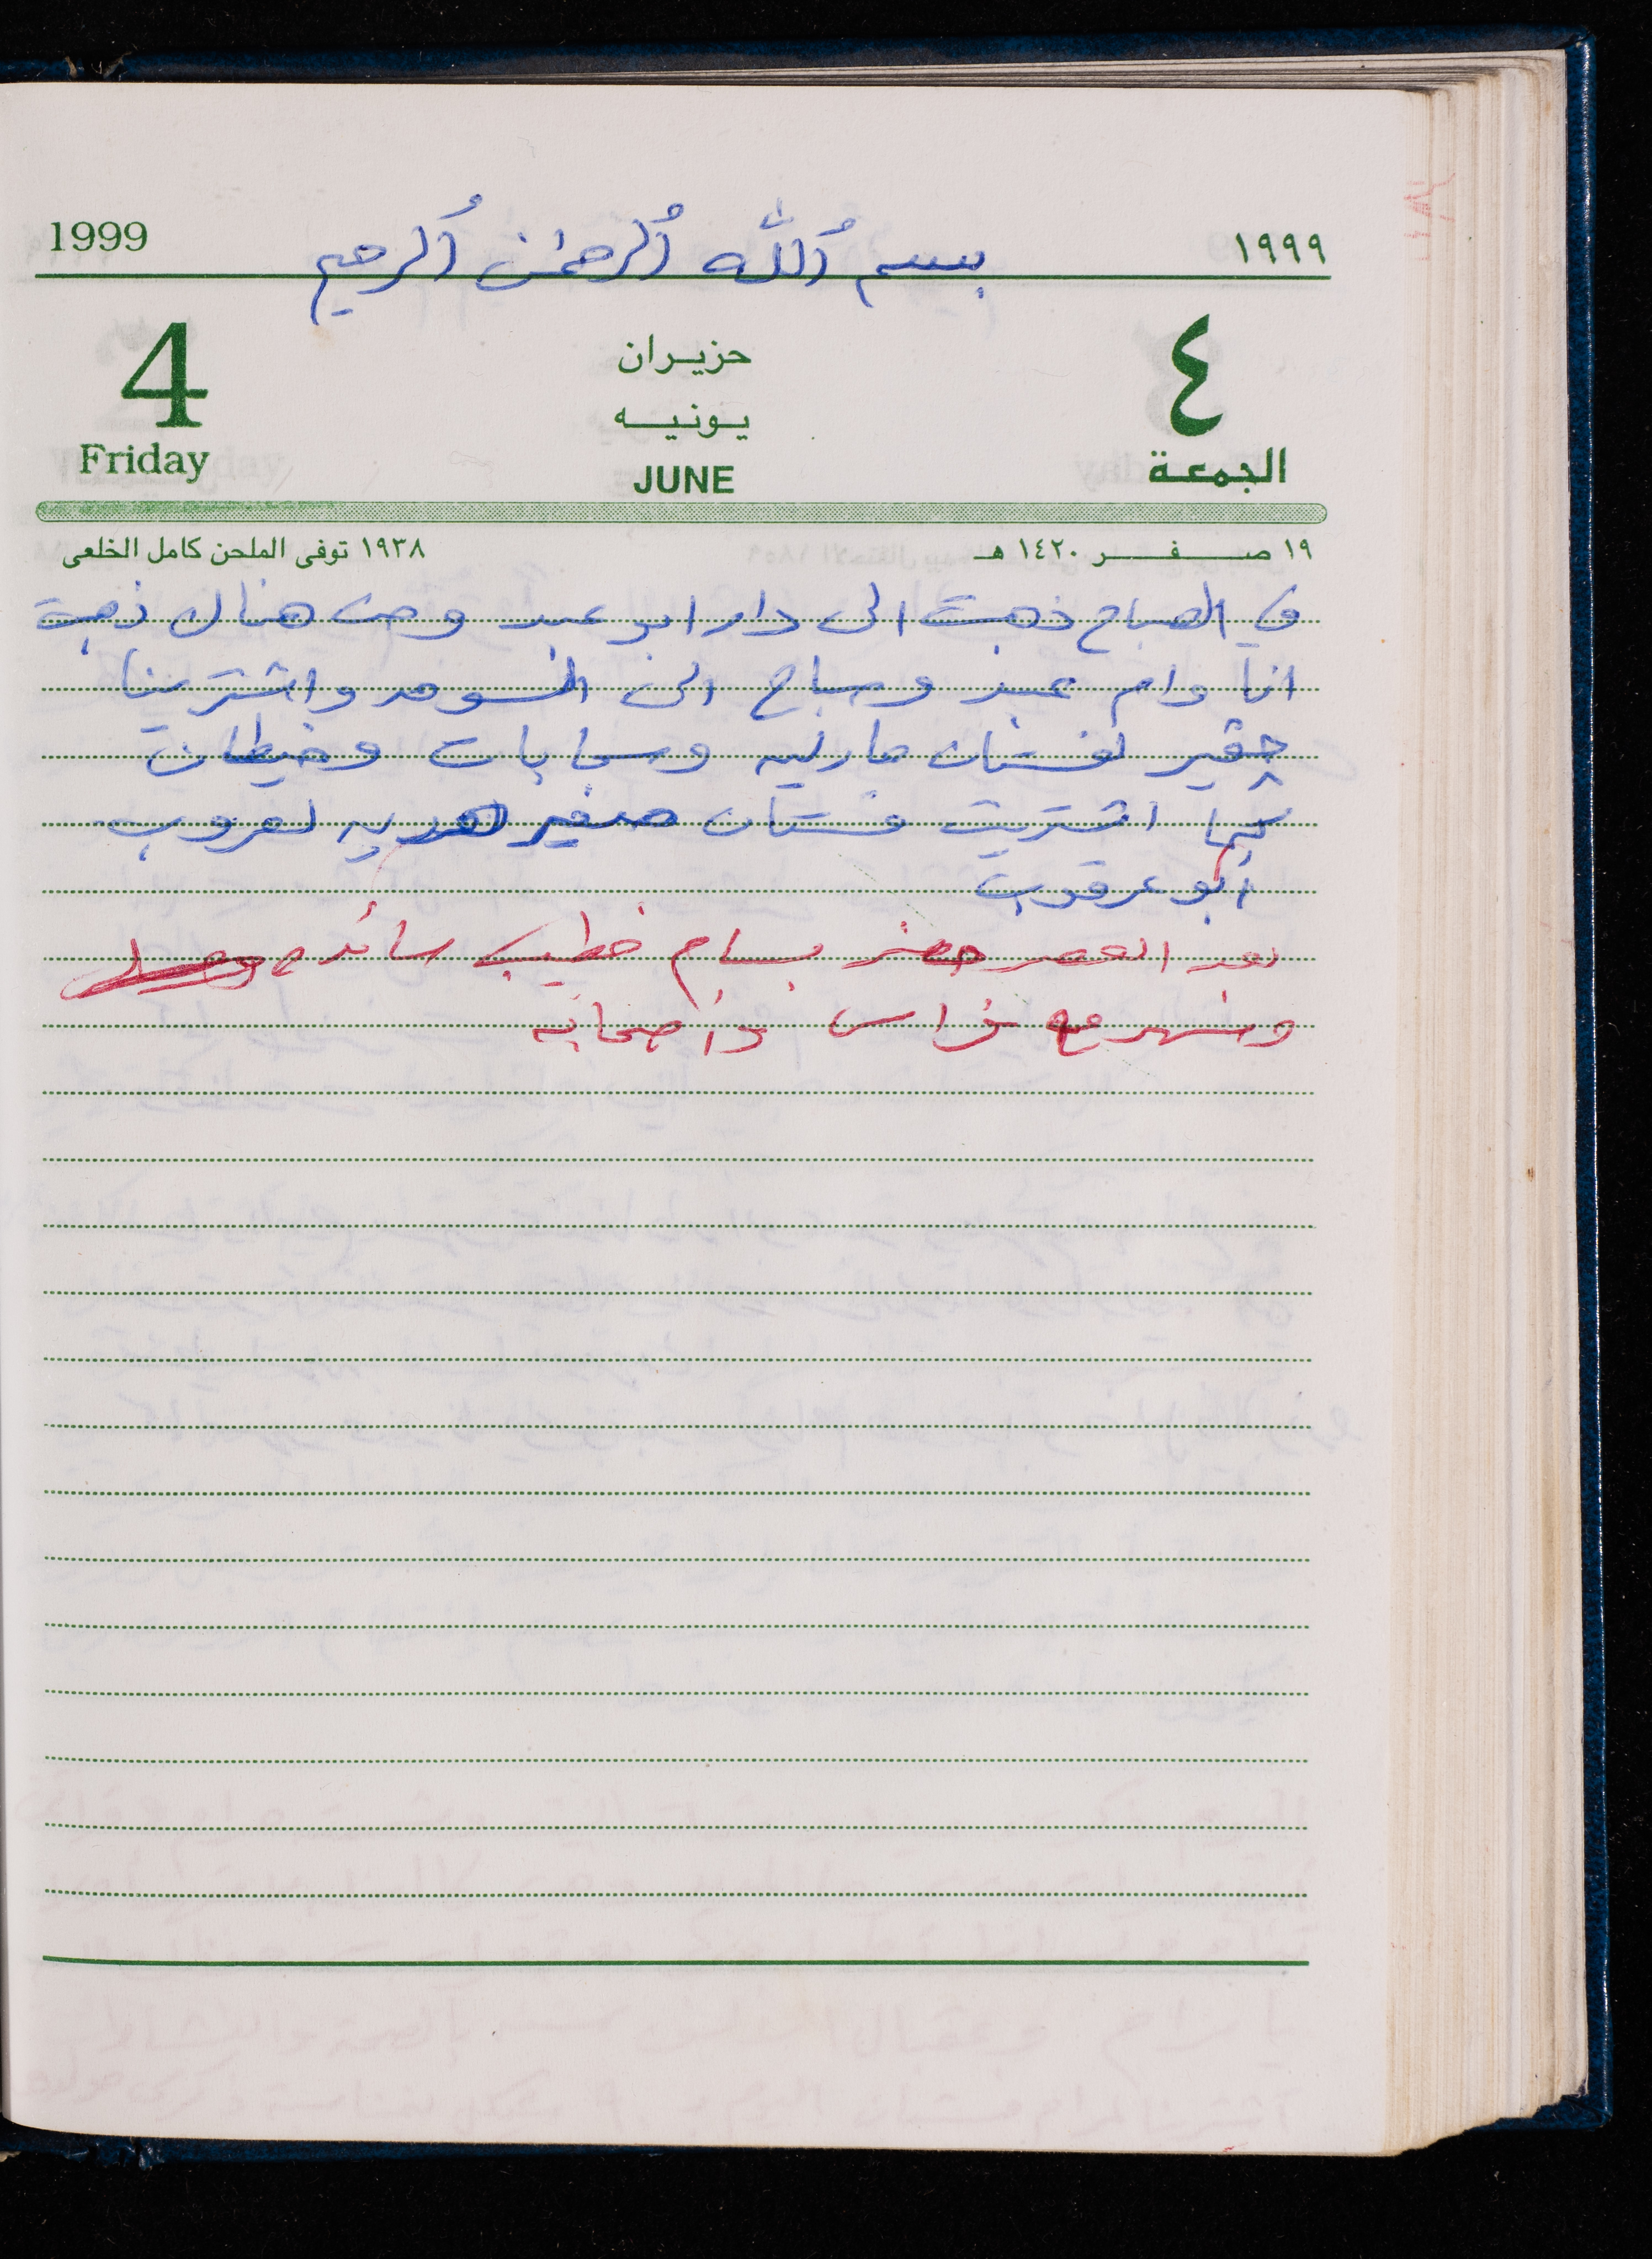 1999 بسم ٱلله ٱلرحمٰن ٱلرحيم ١٩٩٩
4 حزيران ٤
يونيه
Friday JUNE الجمعة
١٩ صفر ١٤٢٠ هـ ١٩٣٨ توفى الملحن كامل الخلعى
في الصباح ذهبت الى دار ابو عبد ومن هناك ذهبت
انا وام عبد وصباح الى السوق واشترينا
لفستان ماريه وسحابات وخيطان
كما اشتريت فستان صغير هديه لعروب
ابو عرقوب
بعد العصر حضر بسام خطيب سائده
وسهر مع فراس وأصحابه